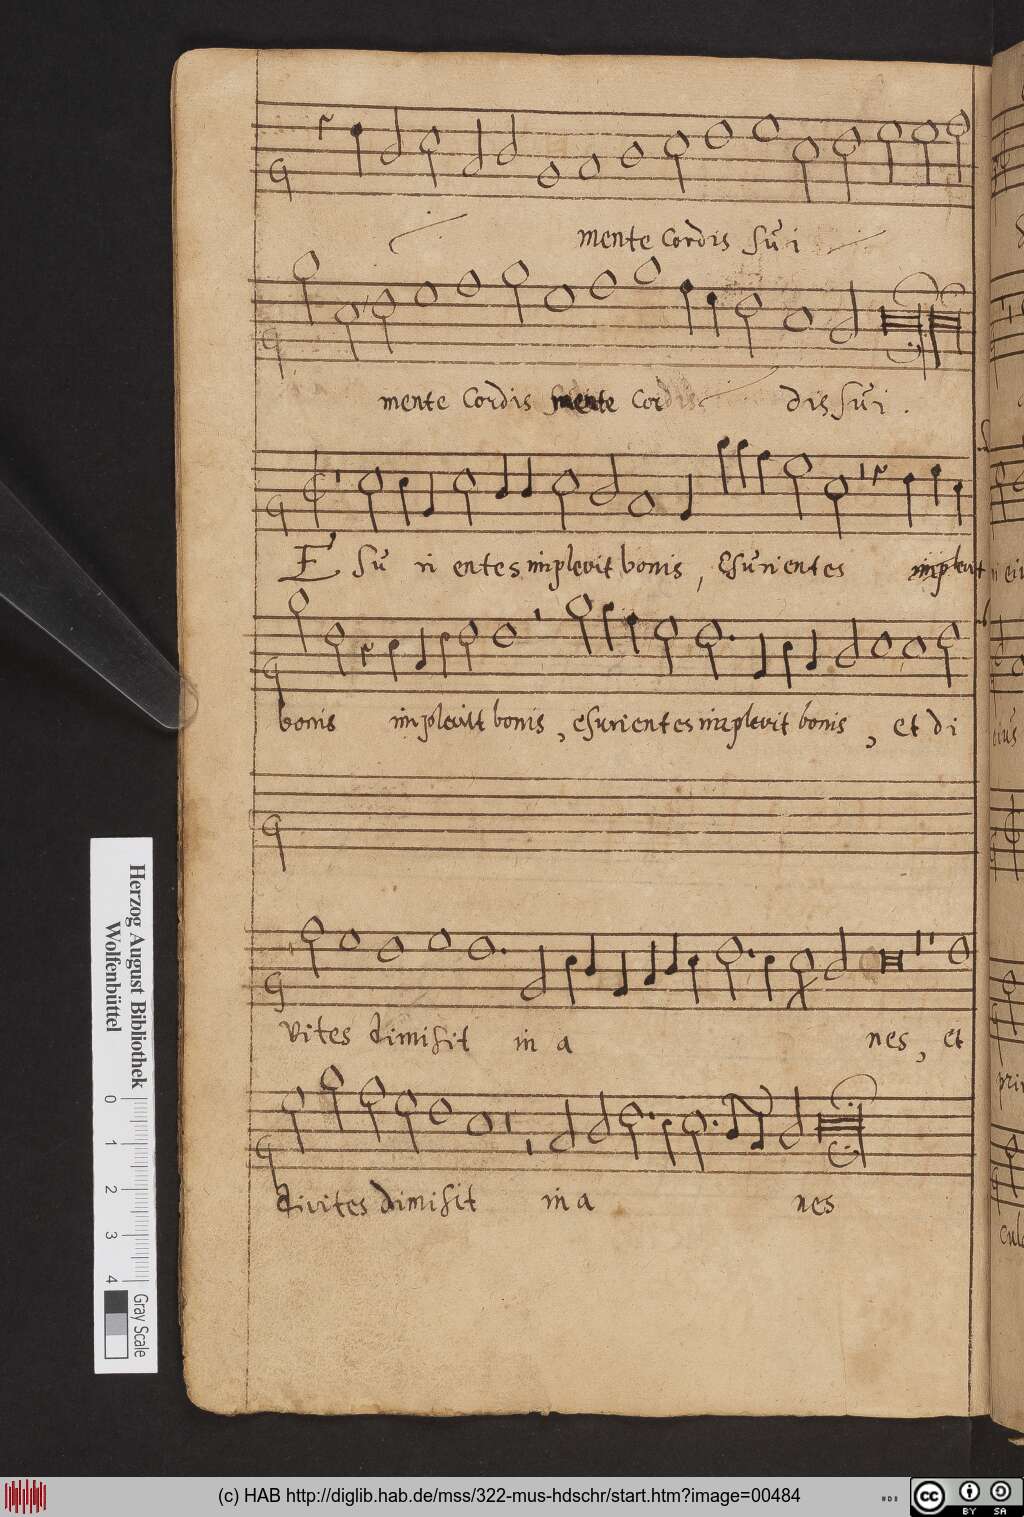 mente Cordis sui
mente Cordis mente Cordis dis sui .
Esurientes implevit bonis , Esurientes implevit
bonis implevit bonis , esurientes implevit bonis , et di
vites dimisit in a nes , et
divites dimisit in a nes
Herzog August Bibliothek
Wolfenbüttel
0 1 2 3 4
Gray Scale
(c) HAB http://diglib.hab.de/mss/322-mus-hdschr/start.htm?image=00484
cc BY SA